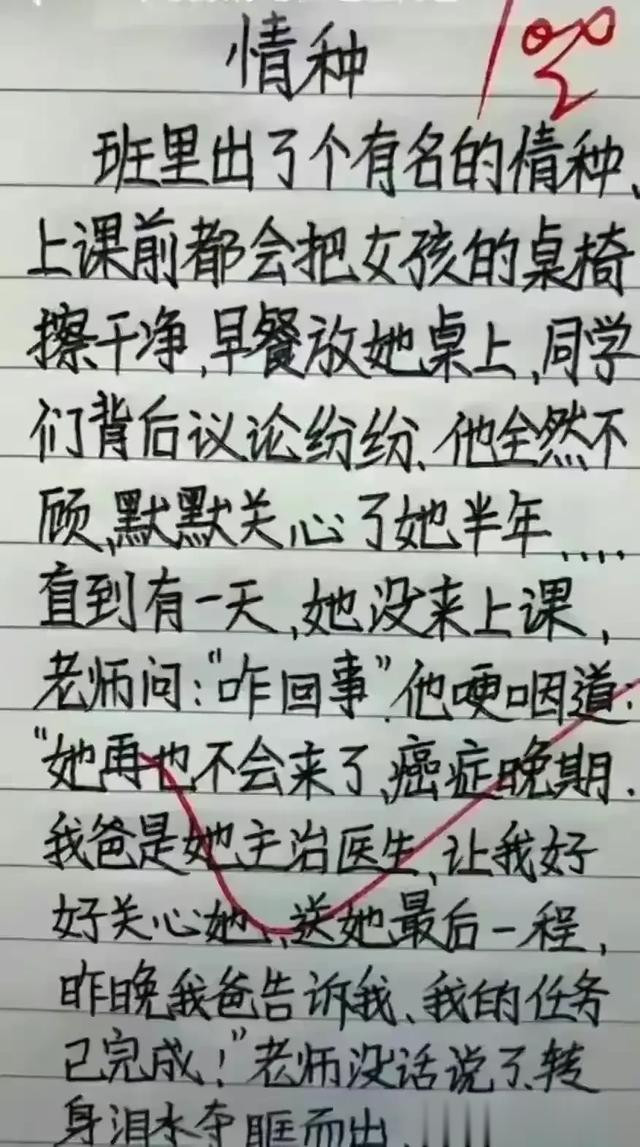 100
情种
班里出了个有名的情种、
上课前都会把女孩的桌椅
擦干净,早餐放她桌上,同学
们背后议论纷纷、他全然不
顾,默默关心了她半年....
直到有一天,她没来上课,
老师问:"咋回事".他哽咽道:
"她再也不会来了,癌症晚期.
我爸是她主治医生、让我好
好关心她,送她最后一程,
昨晚我爸告诉我、我的任务
已完成!"老师没话说了、转
身泪水夺眶而出